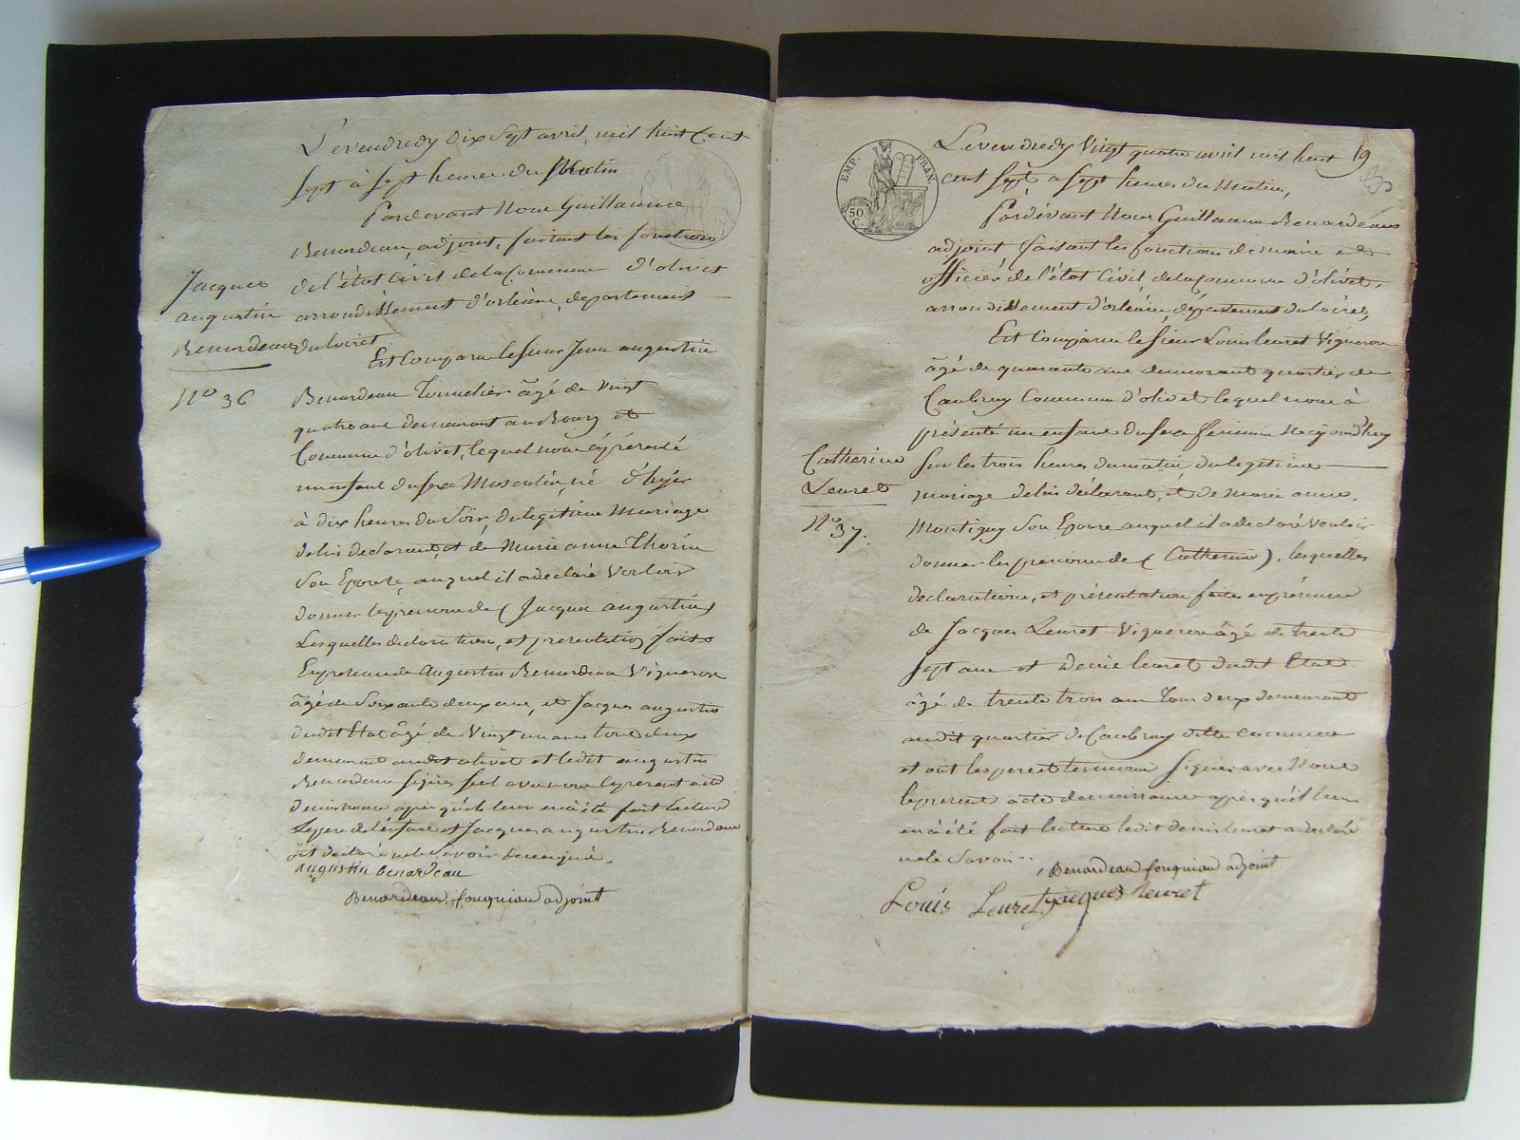 Le vendredy dix sept avril mil huit Cent
sept à sept heures du Matin
Pardevant Nous Guillaume
Benardeau, adjoint, faisant les fonctions
de l'état Civil de la Commune d'olivet
arrondissement d'orléans, departement
du loiret
Est Comparu le sieur Jean augustin
Benardeau Tonnelier âgé de Vingt
quatre ans demeurant au Bourg et
Commune d'olivet, lequel nous a présenté
un enfant du sexe Masculin, né d'hyer
à dix heures du Soir, du legitime Mariage
de lui declarant, et de Marie anne Thorin
Son Epouse, auquel il a declaré Vouloir
donner les prenoms de (Jacques augustin)
Lesquelles declaration, et presentation faite
En presence de Augustin Benardeau Vigneron
âgé de Soixante deux ans, et Jacques augustin
dudit Etat âgé de Vingt un ans tous deux
demeurant audit olivet et ledit augustin
Benardeau signé seul avec nous le present acte
de naissance après qu'il leur en a été fait lecture
le pere de l'enfant et Jacques augustin Benardeau
ont declaré ne le Savoir
augustin benardeau
Benardeau fougniau adjoint
Jacques
augustin
Benardeau
No 36
EMP. FRAN
50
C
19
Le vendredy Vingt quatre avril mil huit
cent sept, a sept heures du Matin,
Pardevant Nous Guillaume Benardeau
adjoint faisant les fonctions de maire et
officier de l'état Civil, de la Commune d'olivet,
arrondissement d'orléans, département du loiret,
Est Comparu le sieur Louis leuret Vigneron
âgé de quarante ans demeurant quartier de
Caubray Commune d'olivet lequel nous à
présenté un enfant du sexe féminin né aujourd'huy
sur les trois heures du matin, du legitime
mariage de lui déclarant, et de marie anne
Montigny Son Epouse auquel il a declaré Vouloir
donner les prenoms de (Catherine), lesquelles
déclaration, et présentation faites en présence
de Jacques Leuret Vigneron âgé de trente
sept ans et Denis leuret dudit Etat
âgé de trente trois ans Tous deux demeurant
audit quartier de Caubray ditte commune
et ont les pere et temoin signé avec Nous
le present acte de naissance après qu'il leur
en a été fait lecture ledit denis leuret a declaré
ne le Savoir
Benardeau fougniau adjoint
Louis Leuret jacques leuret
Catherine
Leuret
No 37.